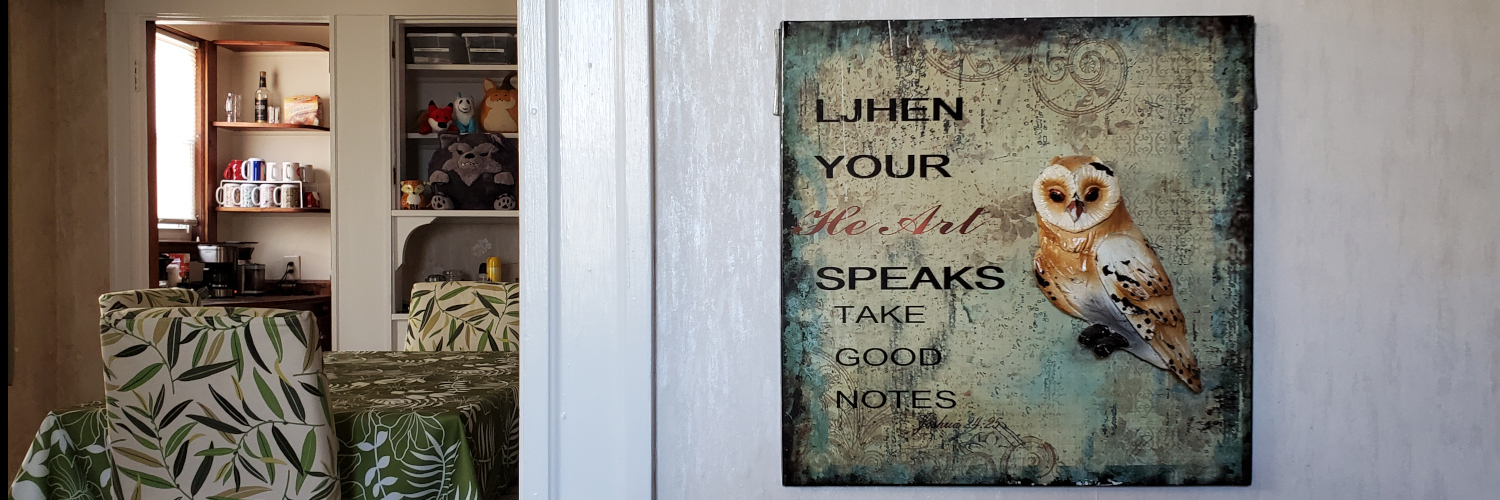 LJHEN
YOUR
He Art
SPEAKS
TAKE
GOOD
NOTES
Joshua 24:25